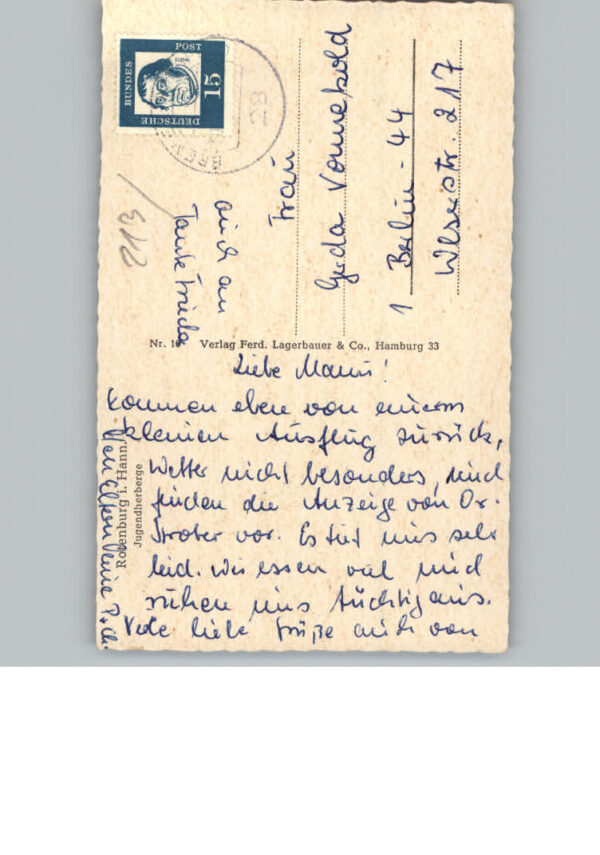 DEUTSCHE
BUNDES
POST
15
28
auch an
Tante Frieda
Frau
Gerda Vonnekold
1 Berlin-44
Weserstr. 217
Verlag Ferd. Lagerbauer & Co., Hamburg 33
Rotenburg i. Hann.
Jugendherberge
Liebe Mami!
Kommen eben von einem
kleinen Ausflug zurück,
Wetter nicht besonders, und
finden die Anzeige von Dr.
vor. Es tut uns sehr
leid. Wir essen viel und
ruhen uns tüchtig aus.
Viele liebe Grüße auch von